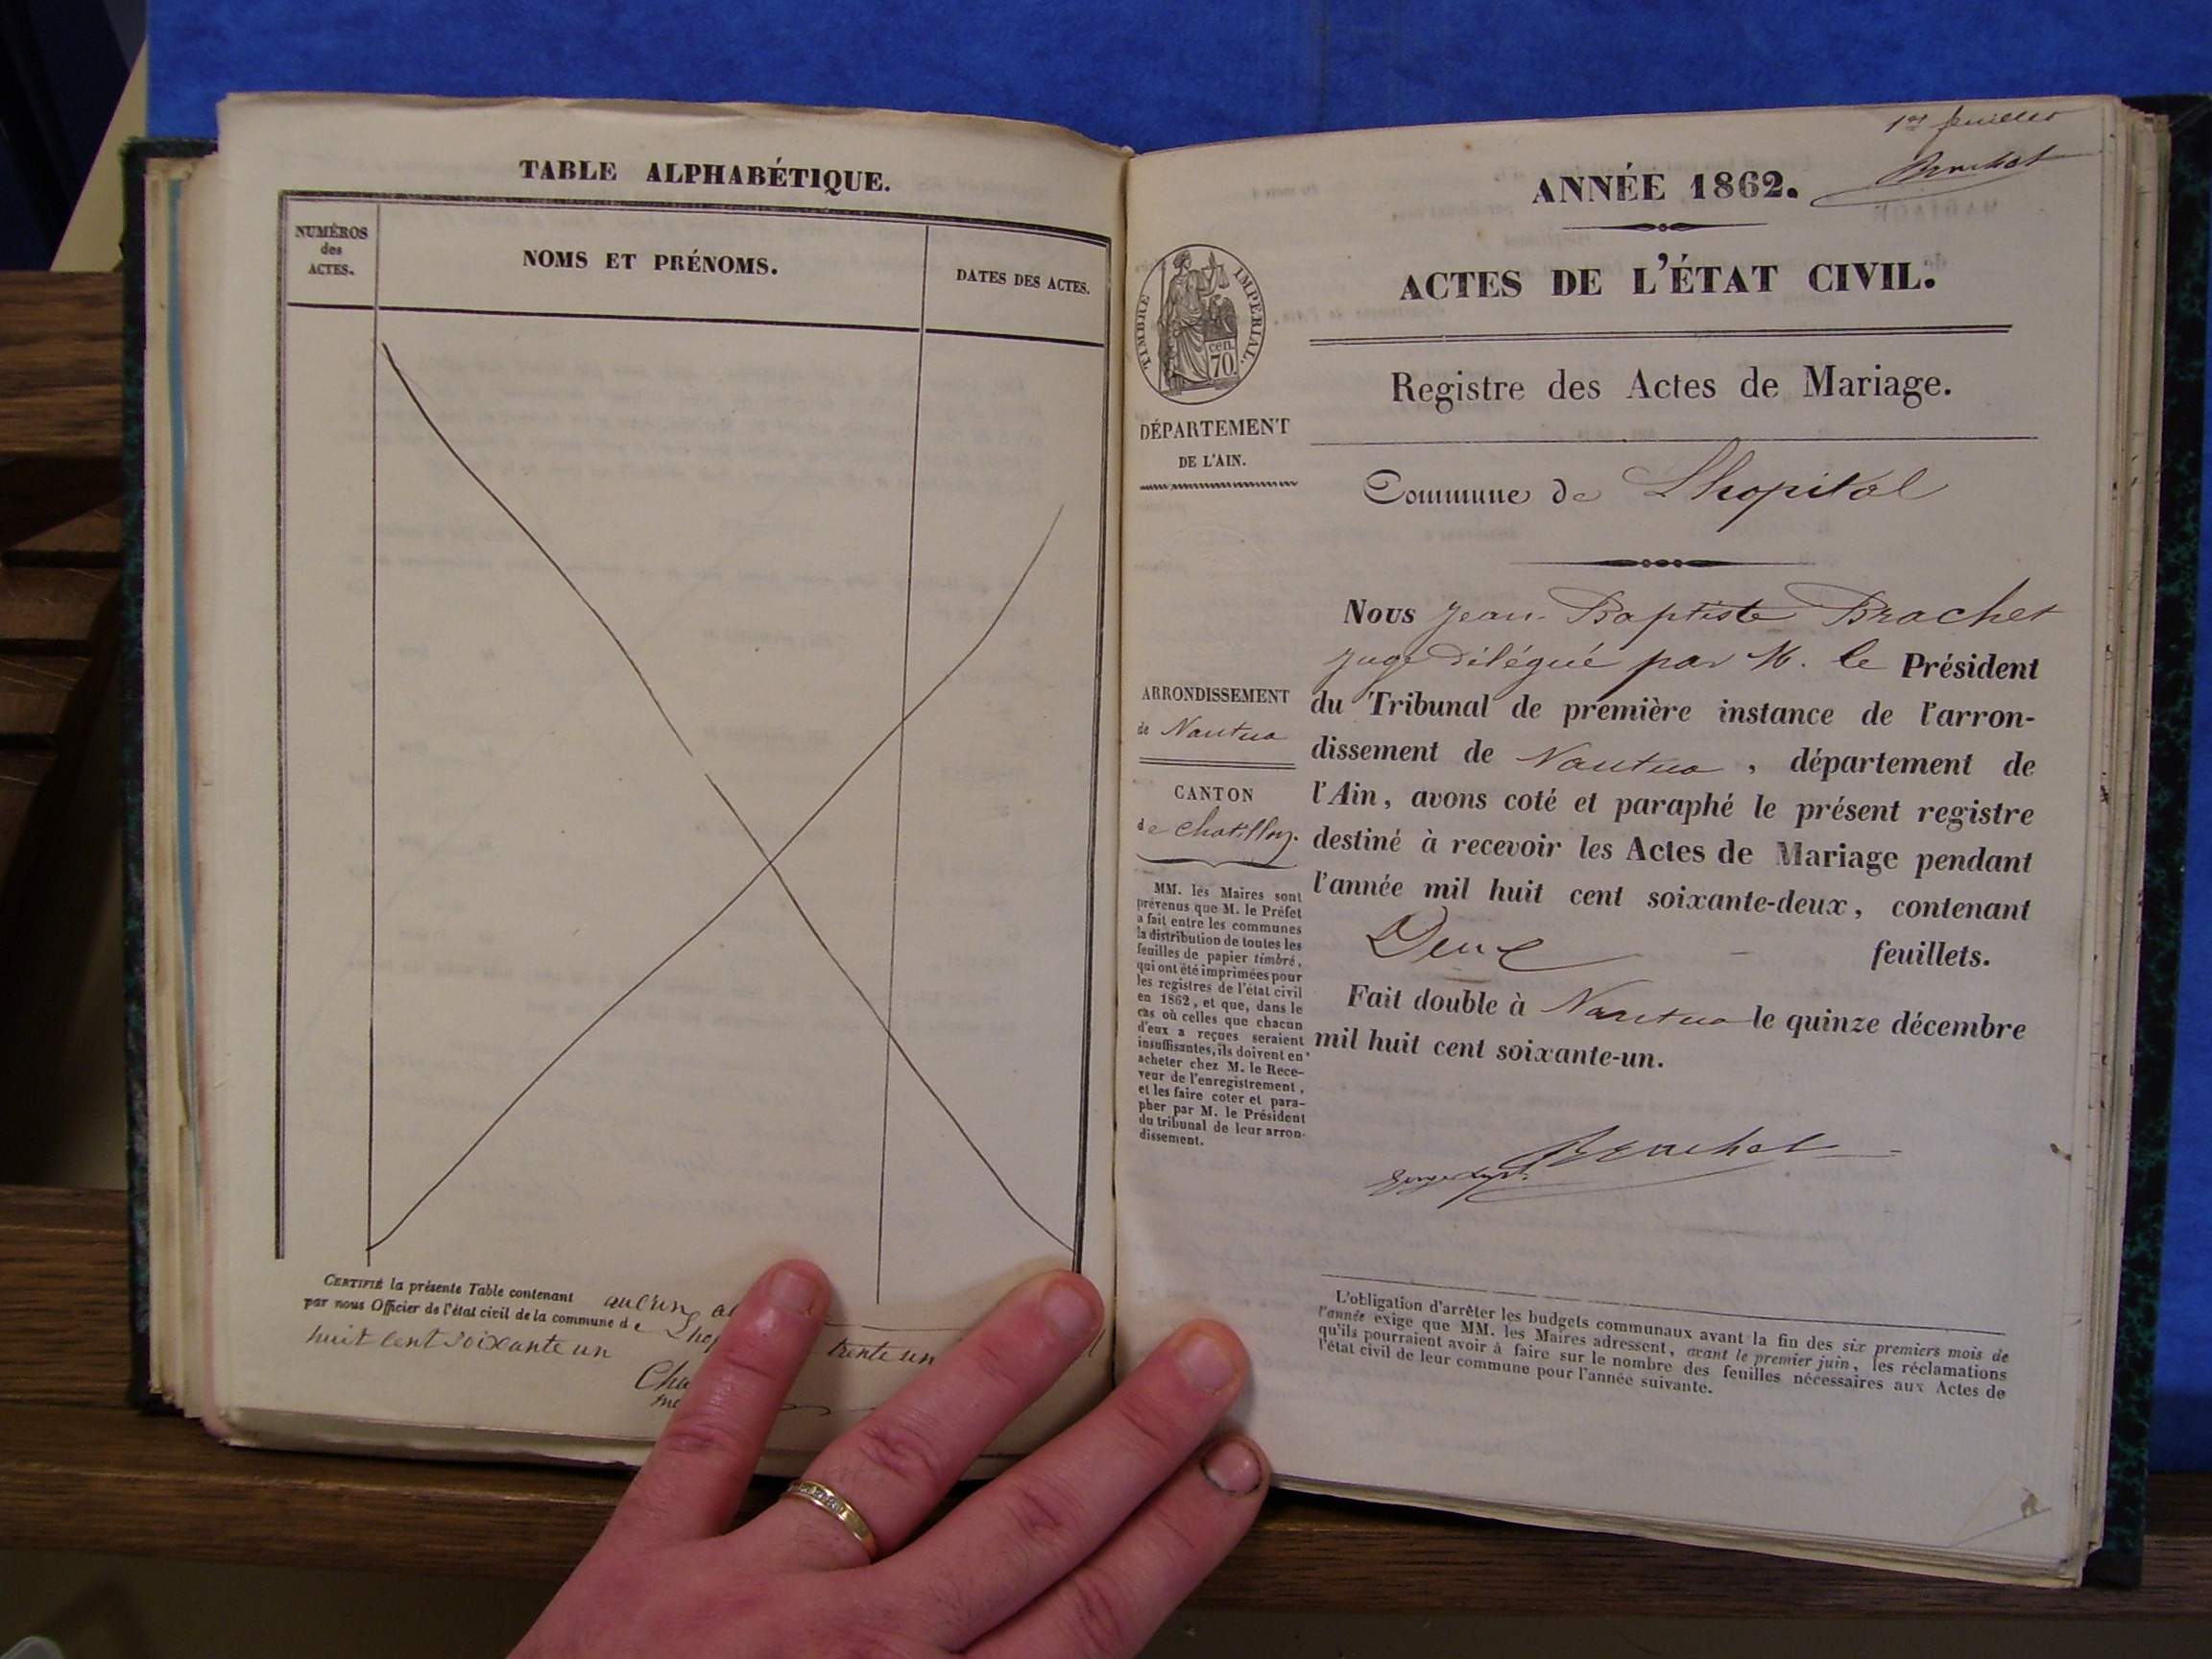 TABLE ALPHABÉTIQUE.
NUMÉROS
des
ACTES.
NOMS ET PRÉNOMS.
DATES DES ACTES.
CERTIFIÉ la présente Table contenant aucun
par nous Officier de l'état civil de la commune de trente un
huit cent soixante un
1er feuillet
Brachet
ANNÉE 1862.
ACTES DE L'ÉTAT CIVIL.
Registre des Actes de Mariage.
TIMBRE IMPÉRIAL.
70 cen.
DÉPARTEMENT
DE L'AIN.
Commune de Lhopital
ARRONDISSEMENT
de Nantua
CANTON
de Chatillon.
MM. les Maires sont
prévenus que M. le Préfet
a fait entre les communes
la distribution de toutes les
feuilles de papier timbré,
qui ont été imprimées pour
les registres de l'état civil
en 1862, et que, dans le
cas où celles que chacun
d'eux a reçues seraient
insuffisantes, ils doivent en
acheter chez M. le Rece-
veur de l'enregistrement,
et les faire coter et para-
pher par M. le Président
du tribunal de leur arron-
dissement.
Nous Jean-Baptiste Brachet
juge délégué par M. le Président
du Tribunal de première instance de l'arron-
dissement de Nantua, département de
l'Ain, avons coté et paraphé le présent registre
destiné à recevoir les Actes de Mariage pendant
l'année mil huit cent soixante-deux, contenant
Deux feuillets.
Fait double à Nantua le quinze décembre
mil huit cent soixante-un.
Brachet
L'obligation d'arrêter les budgets communaux avant la fin des six premiers mois de
l'année exige que MM. les Maires adressent, avant le premier juin, les réclamations
qu'ils pourraient avoir à faire sur le nombre des feuilles nécessaires aux Actes de
l'état civil de leur commune pour l'année suivante.